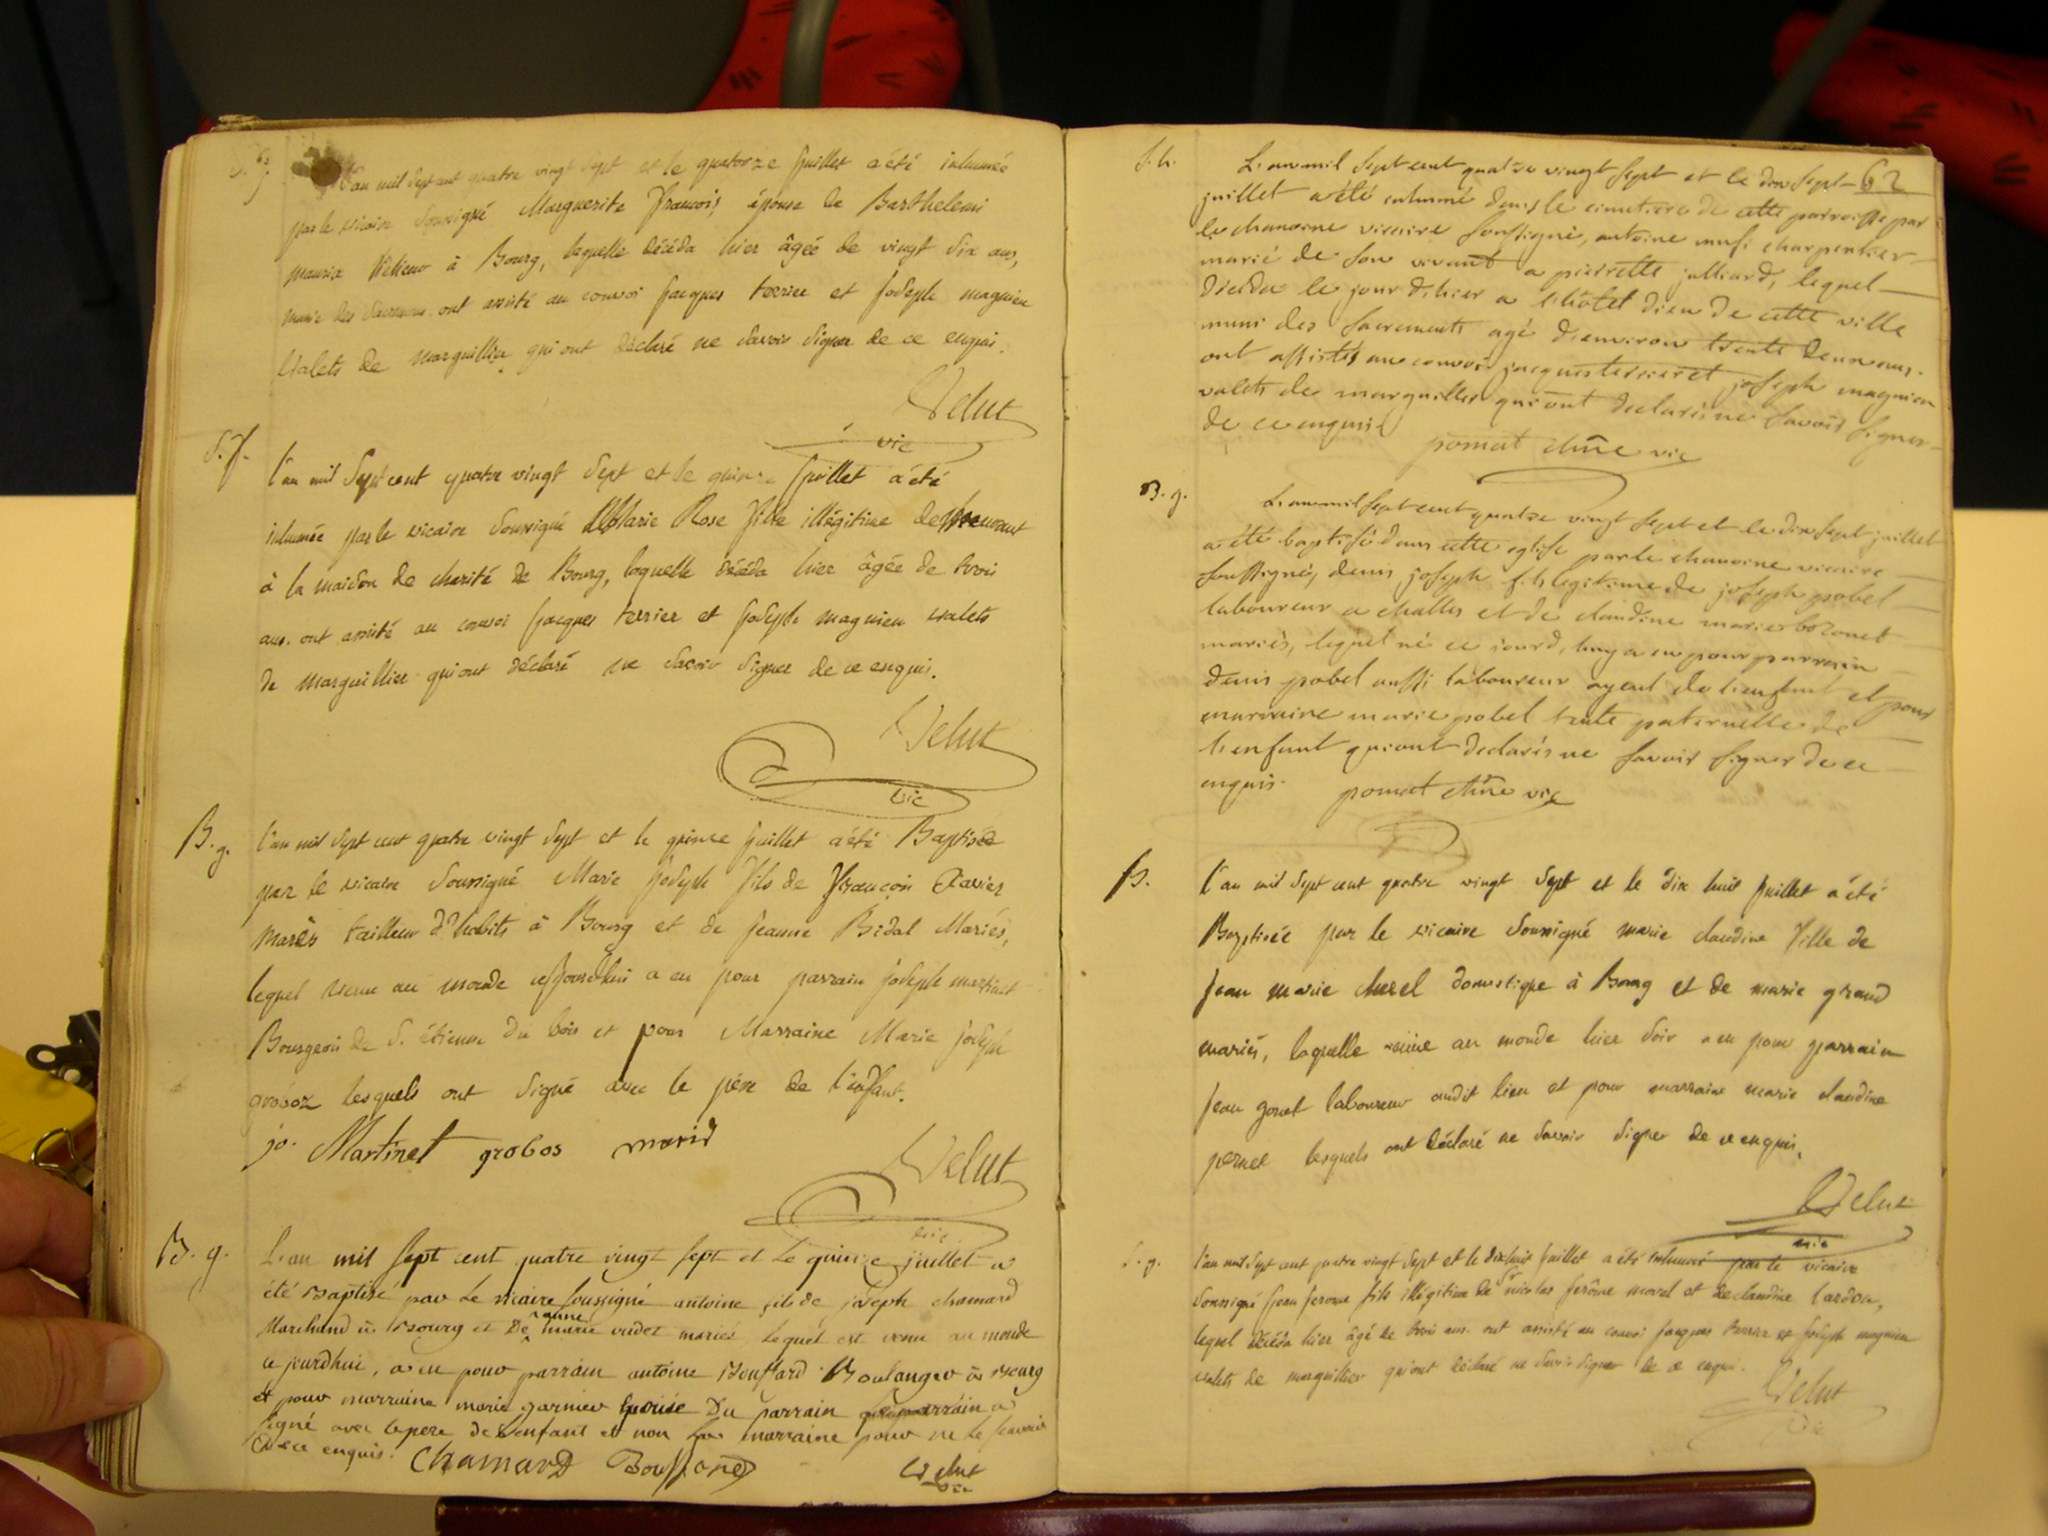 S. f.
L'an mil sept cent quatre vingt sept et le quatorze Juillet a été inhumée
par le vicaire soussigné Marguerite françois épouse de Barthelemi
à Bourg, laquelle décéda hier âgée de vingt six ans,
munie des sacremens ont assisté au convoi Jacques terrier et Joseph magnien
valets de marguillier qui ont déclaré ne savoir signer de ce enquis.
Velut
vic
S. f.
L'an mil sept cent quatre vingt sept et le quinze Juillet a été
inhumée par le vicaire soussigné Marie Rose fille illégitime demeurant
à la maison de charité de Bourg, laquelle décéda hier âgée de trois
ans. ont assisté au convoi Jacques terrier et Joseph magnien valets
de marguillier qui ont déclaré ne savoir signer de ce enquis.
Velut
vic
B. g.
L'an mil sept cent quatre vingt sept et le quinze Juillet a été Baptisé
par le vicaire soussigné Marie Joseph fils de François Xavier
tailleur d'habits à Bourg et de Jeanne Bidal Mariés,
lequel venu au monde ce Jourdhui a eu pour parrain joseph martinet
Bourgeois de S. étienne du bois et pour Marraine Marie joseph
lesquels ont signé avec le père de l'enfant.
jo. Martinet grobos
Velut
vic
B. g.
L'an mil sept cent quatre vingt sept et le quinze juillet a
été Baptisé par le vicaire soussigné antoine fils de joseph chamard
Marchand à Bourg et De anne marie vudez mariés lequel est venu au monde
ce jourdhui, a eu pour parrain antoine Bouffard Boulanger à Bourg
et pour marraine marie garnier épouse Du parrain a
signé avec le pere de l'enfant et non la marraine pour ne le scavoir
de ce enquis. Chamard Bouffard Velut
vic
62
S. h.
L'an mil sept cent quatre vingt sept et le dix sept
juillet a été inhumé dans le cimetiere de cette parroisse par
le chanoine vicaire soussigné, antoine charpentier
marié de son vivant a pierrette julliard, lequel
décéda le jour d'hier a l'hôtel dieu de cette ville
muni des sacrements agé d'environ trente deux ans.
ont assistés au convoi jacques terrier et joseph magnien
valets de marguillier qui ont declarés ne savoir signer
de ce enquis
pomat chne vic
B. g.
L'an mil sept cent quatre vingt sept et le dix sept juillet
a été baptisé dans cette eglise par le chanoine vicaire
soussigné, denis joseph fils legitime de joseph pobel
laboureur a challes et de claudine marie bozonet
mariés, lequel né ce jourd'huy a eu pour parrain
denis pobel aussi laboureur ayeul de l'enfant et pour
marraine marie pobel tante paternelle de
l'enfant qui ont declarés ne savoir signer de ce
enquis. pomat chne vic
B.
L'an mil sept cent quatre vingt sept et le dix huit Juillet a été
Baptisée par le vicaire soussigné marie claudine fille de
Jean marie churel domestique à Bourg et de marie grand
mariés, laquelle venue au monde hier soir a eu pour parrain
Jean gonet laboureur audit lieu et pour marraine marie claudine
pernet lesquels ont déclaré ne savoir signer de ce enquis.
Velut
vic
S. g.
L'an mil sept cent quatre vingt sept et le dix huit Juillet a été inhumé par le vicaire
soussigné Jean Jerome fils illégitime de Sr nicolas Jerôme morel et de claudine lardon,
lequel décéda hier âgé de trois ans. ont assisté au convoi Jacques terrier et Joseph magnien
valets de marguillier qui ont déclaré ne savoir signer de ce enquis.
Velut
vic